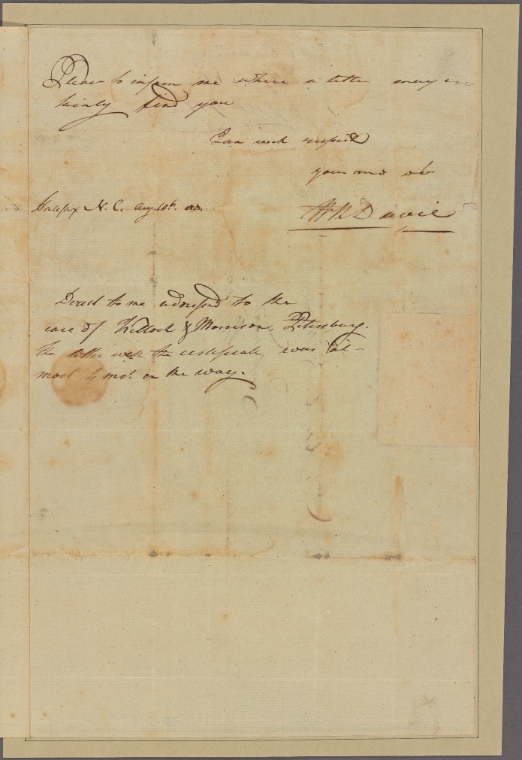 Please to inform me where a letter may cer
tainly find you
I am with respect
your mo ob
W R Davie
Halifax N. C. Aug
Direct to me addressed to the
care of & Morrison, Petersburg.
the letter with the certificate, was al-
most 4 mo. on the way.